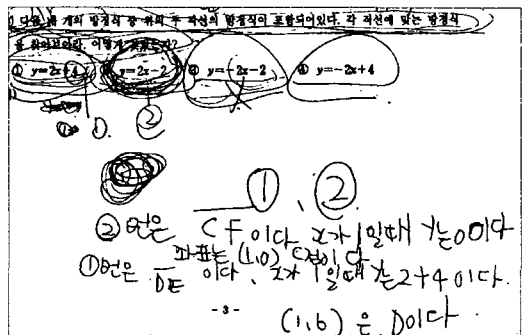 다음 네 개의 방정식 중 위의 두 직선의 방정식이 포함되어있다. 각 직선에 맞는 방정식
을 찾아보아라. 어떻게 찾았는가?
① y=2x+4 ② y=2x-2 ③ y=-2x-2 ④ y=-2x+4
① ②
①、②
②번은 CF이다 x가 1일때 y는 0이다
좌표는 (1,0) C점이다
①번은 DE이다、x가 1일때 y는 2+4이다.
- 3 - (1,6)은 D이다.